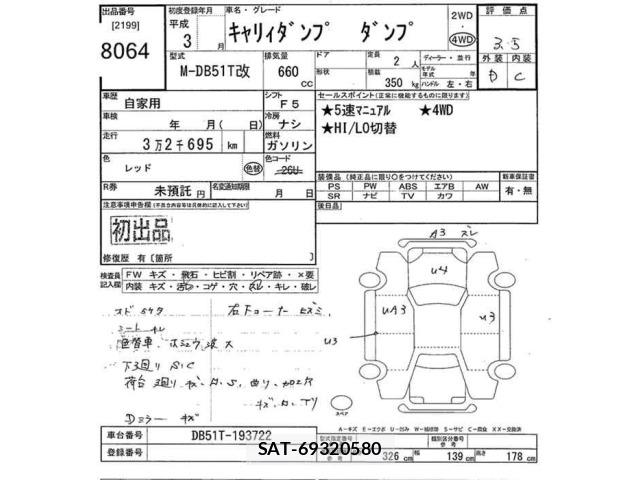 出品番号 初度登録年月 車名・グレード 評価点
[2199] 平成 キャリィダンプ ダンプ 2WD
8064 3 月 4WD 3.5
型式 排気量 ドア 定員 ディーラー・並行 外装 内装
M-DB51T改 660 CC 形状 2 人 モデル年式 年式 D C
積載 350 kg ハンドル 左・右
車歴 自家用 シフト F5 セールスポイント(正常に機能するものに限ります)
車検 年 月( 日) 冷房 ナシ ★5速マニュアル ★4WD
走行 3万2千695 km 燃料 ガソリン ★HI/LO切替
色 レッド 色替 色コード 26U
装備品(純正品に限り○をつけてください) 新車保証書
R券 未預託 円 名変通知期限 月 日 PS PW ABS エアB AW 有・無
SR ナビ TV カワ
注意事項申告欄(不具合内容等は具体的に記入して下さい) 後日品
初出品
修復歴 有[箇所 ]
検査員記入欄 FW キズ・飛石・ヒビ割・リペア跡・×要
内装 キズ・汚レ・コゲ・穴・スレ・キレ・破レ
A3 ズレ
U4
UA3 U3
U3
シート キレ
色替車
下廻り S.C
Dミラー キズ
スペア
A-キズ E-エクボ U-凹み W-補修跡 S-サビ C-腐食 XX-交換済
車台番号 DB51T-193722 型式指定番号 類別区分番号
登録番号 SAT-69320580 326 cm 幅 139 cm 高さ 178 cm